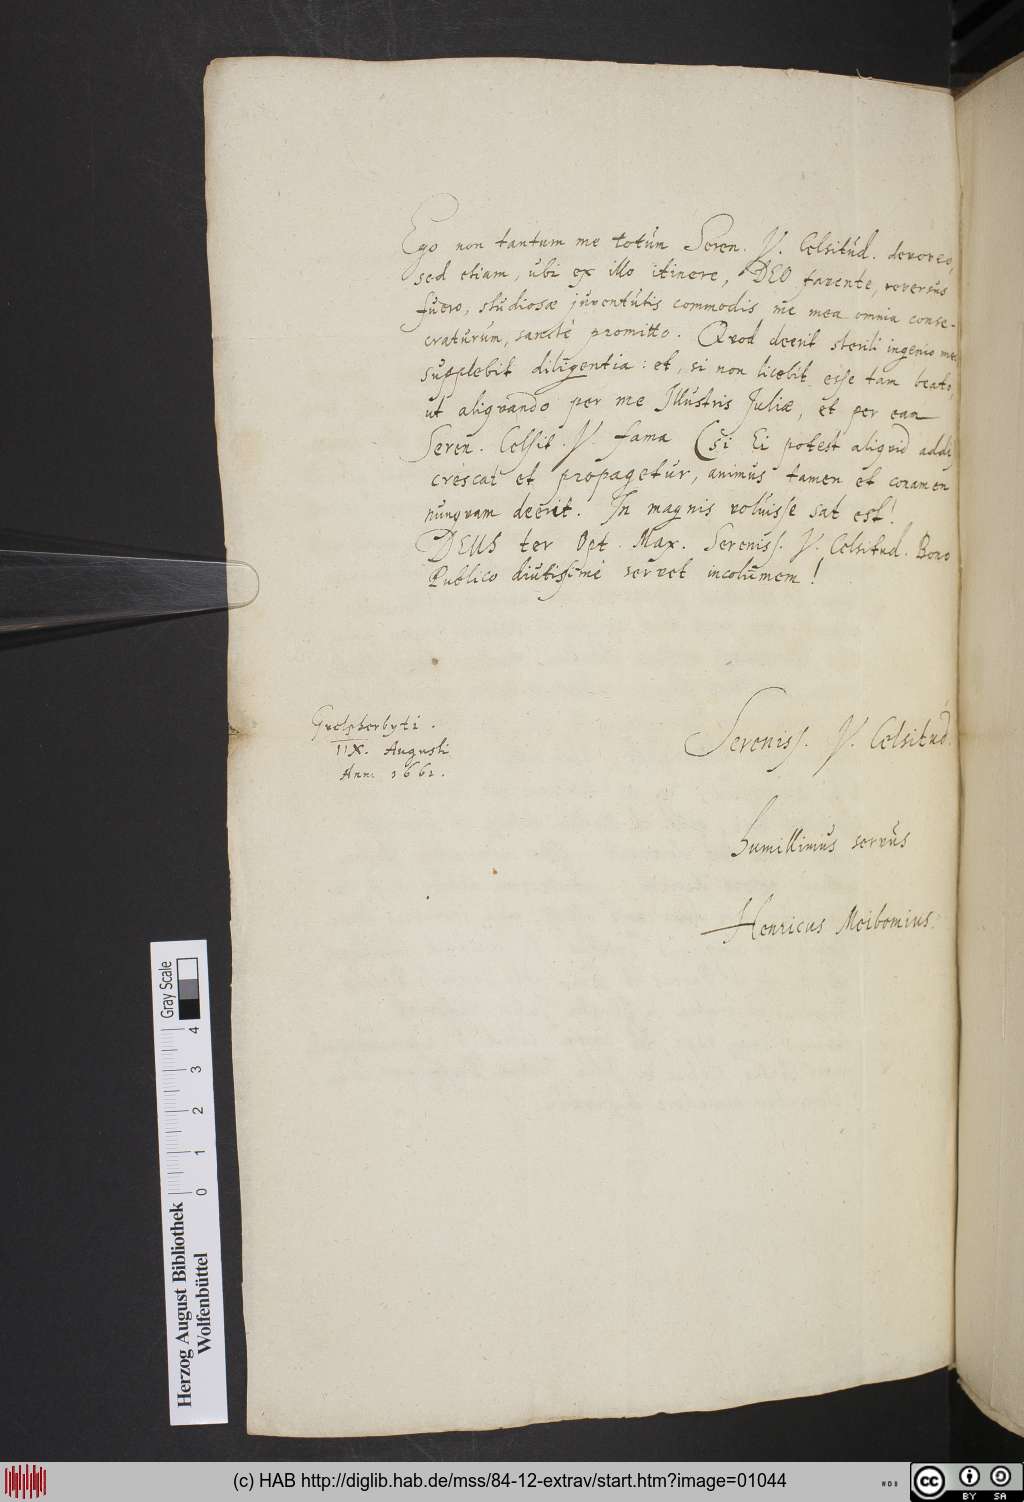 Ego non tantum me totúm Seren. V. Celsitúd. devoveo,
sed etiam, ubi ex illo itinere, DEO favente, reversus
fuero, studiosæ juventútis commodis me mea omnia conse-
craturúm, sanctè promitto. Qvod deerit sterili ingenio meo
supplebit diligentia: et, si non licebit esse tam beato,
ut aliqvando per me Illustris Juliæ, et per eam
Seren. Celsit. V. fama (si Ei potest aliqvid addi)
crescat et propagetur, animus tamen et conamen
nunqvam deerit. In magnis volúisse sat est!
DEUS ter Opt. Max. Sereniss. V. Celsitud. Bono
Publico diutissimè servet incolumem!
Guelpherbyti.
IIX. Augusti
Ann. 1661.
Sereniss. V. Celsitud.
humillimus servús
Henricus Meibomius.
Gray Scale
0 1 2 3 4
Herzog August Bibliothek
Wolfenbüttel
(c) HAB http://diglib.hab.de/mss/84-12-extrav/start.htm?image=01044
WDB
cc BY SA